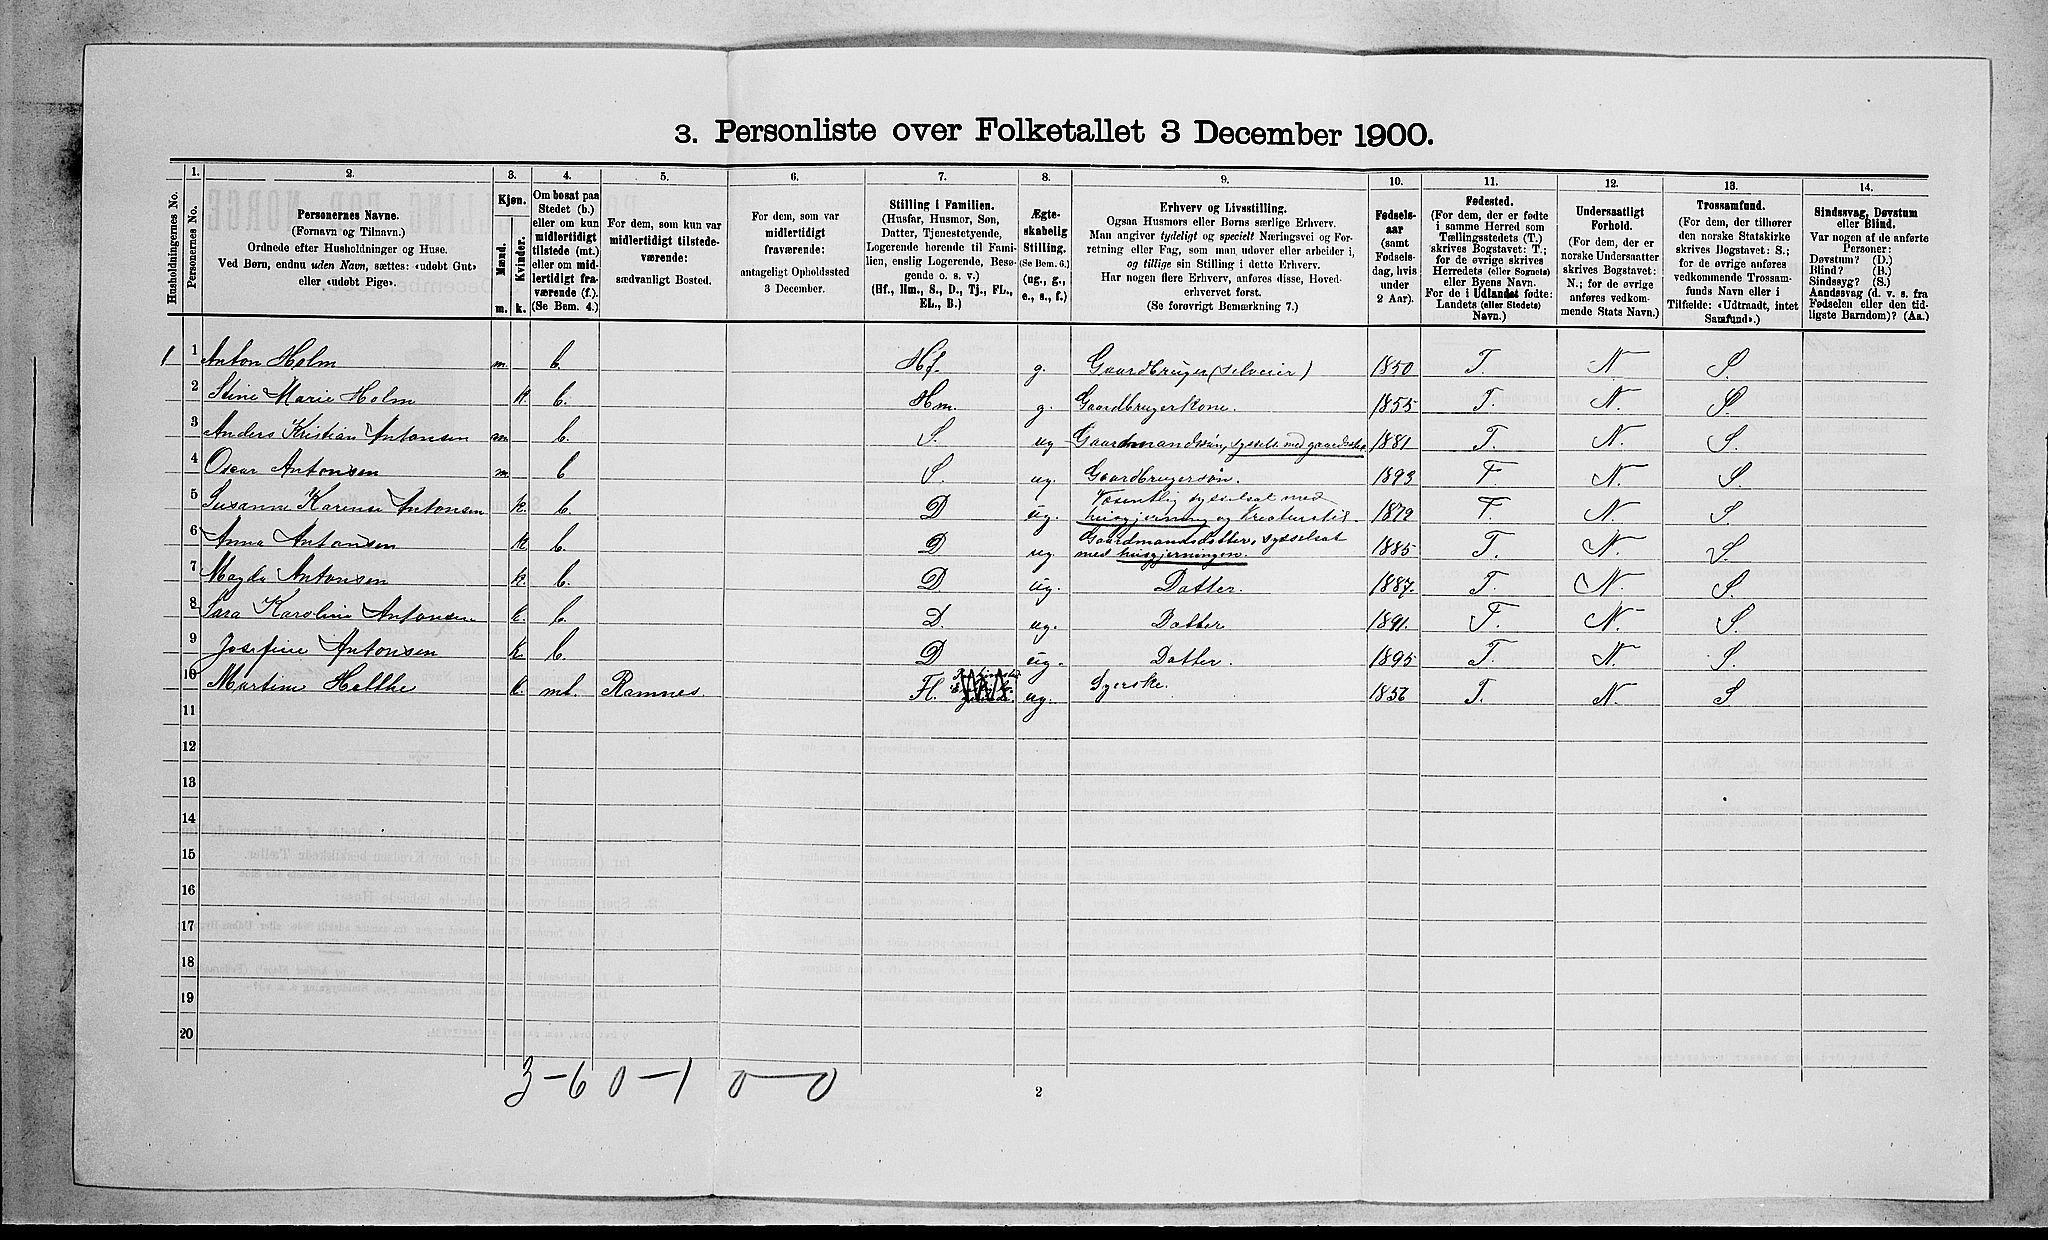 3. Personliste over Folketallet 3 December 1900.
Husholdningernes No.
1.
Personernes No.
2.
Personernes Navne.
(Fornavn og Tilnavn.)
Ordnede efter Husholdninger og Huse.
Ved Børn, endnu uden Navn, sættes: «udøbt Gut»
eller «udøbt Pige».
3.
Kjøn.
Mænd.
Kvinder.
m. k.
4.
Om bosat paa
Stedet (b.)
eller om kun
midlertidigt
tilstede (mt.)
eller om mid-
lertidigt fra-
værende (f.).
(Se Bem. 4.)
5.
For dem, som kun var
midlertidigt tilstede-
værende:
sædvanligt Bosted.
6.
For dem, som var
midlertidigt
fraværende:
antageligt Opholdssted
3 December.
7.
Stilling i Familien.
(Husfar, Husmor, Søn,
Datter, Tjenestetyende,
Logerende hørende til Fami-
lien, enslig Logerende, Besø-
gende o. s. v.)
(Hf., Hm., S., D., Tj., FL.,
EL., B.)
8.
Ægte-
skabelig
Stilling.
(Se Bem. 6.)
(ug., g.,
e., s., f.)
9.
Erhverv og Livsstilling.
Ogsaa Husmors eller Børns særlige Erhverv.
Man angiver tydeligt og specielt Næringsvei og For-
retning eller Fag, som man udover eller arbeider i,
og tillige sin Stilling i dette Erhverv.
Har nogen flere Erhverv, anføres disse, Hoved-
erhvervet først.
(Se forøvrigt Bemærkning 7.)
10.
Fødsels-
aar
(samt
Fødsels-
dag, hvis
under
2 Aar).
11.
Fødested.
(For dem, der er fødte
i samme Herred som
Tællingsstedets (T.)
skrives Bogstavet: T.;
for de øvrige skrives
Herredets (eller Sognets)
eller Byens Navn.
For de i Udlandet fødte:
Landets (eller Stedets)
Navn.)
12.
Undersaatligt
Forhold.
(For dem, der er
norske Undersaatter
skrives Bogstavet:
N.; for de øvrige
anføres vedkom-
mende Stats Navn.)
13.
Trossamfund.
(For dem, der tilhører
den norske Statskirke
skrives Bogstavet: S.;
for de øvrige anføres
vedkommende Trossam-
funds Navn eller i
Tilfælde: «Udtraadt, intet
Samfund».)
14.
Sindssvag, Døvstum
eller Blind.
Var nogen af de anførte
Personer:
Døvstum? (D.)
Blind? (B.)
Sindssyg? (S.)
Aandssvag (d. v. s. fra
Fødselen eller den tid-
ligste Barndom)? (Aa.)
1 1 Anton Holm m. b. Hf. g. Gaardbruger (selveier) 1850 T. N S.
2 Stine Marie Holm k. b. Hm. g. Gaardbrugerkone. 1855 T. N. S
3 Anders Kristian Antonsen m b. S. ug Gaardmandssøn, syssels. med gaardsar. 1881 T. N. S.
4 Oscar Antonsen m. b S. ug. Gaardbrugersøn. 1893 T. N. S
5 Susanne Karense Antonsen k. b. D ug. Væsentlig sysselsat med
husgjerning og Kreaturstel. 1879 T. N. S.
6 Anna Antonsen k b. D ug. Gaardmandsdatter, sysselsat
med husgjerningen. 1885 T. N. S
7 Magda Antonsen k. b. D. ug. Datter. 1887. T. N. S.
8 Sara Karoline Antonsen k. b. D. ug. Datter 1891. T. N. S.
9 Josefine Antonsen k. b. D ug. Datter. 1895 T. N. S.
10 Martine Holthe k. mt. Ramnes. Fl. ug. Syerske. 1856 T. N. S
11
12
13
14
15
16
17
18
19
20
3-6 0-1 0-0
2